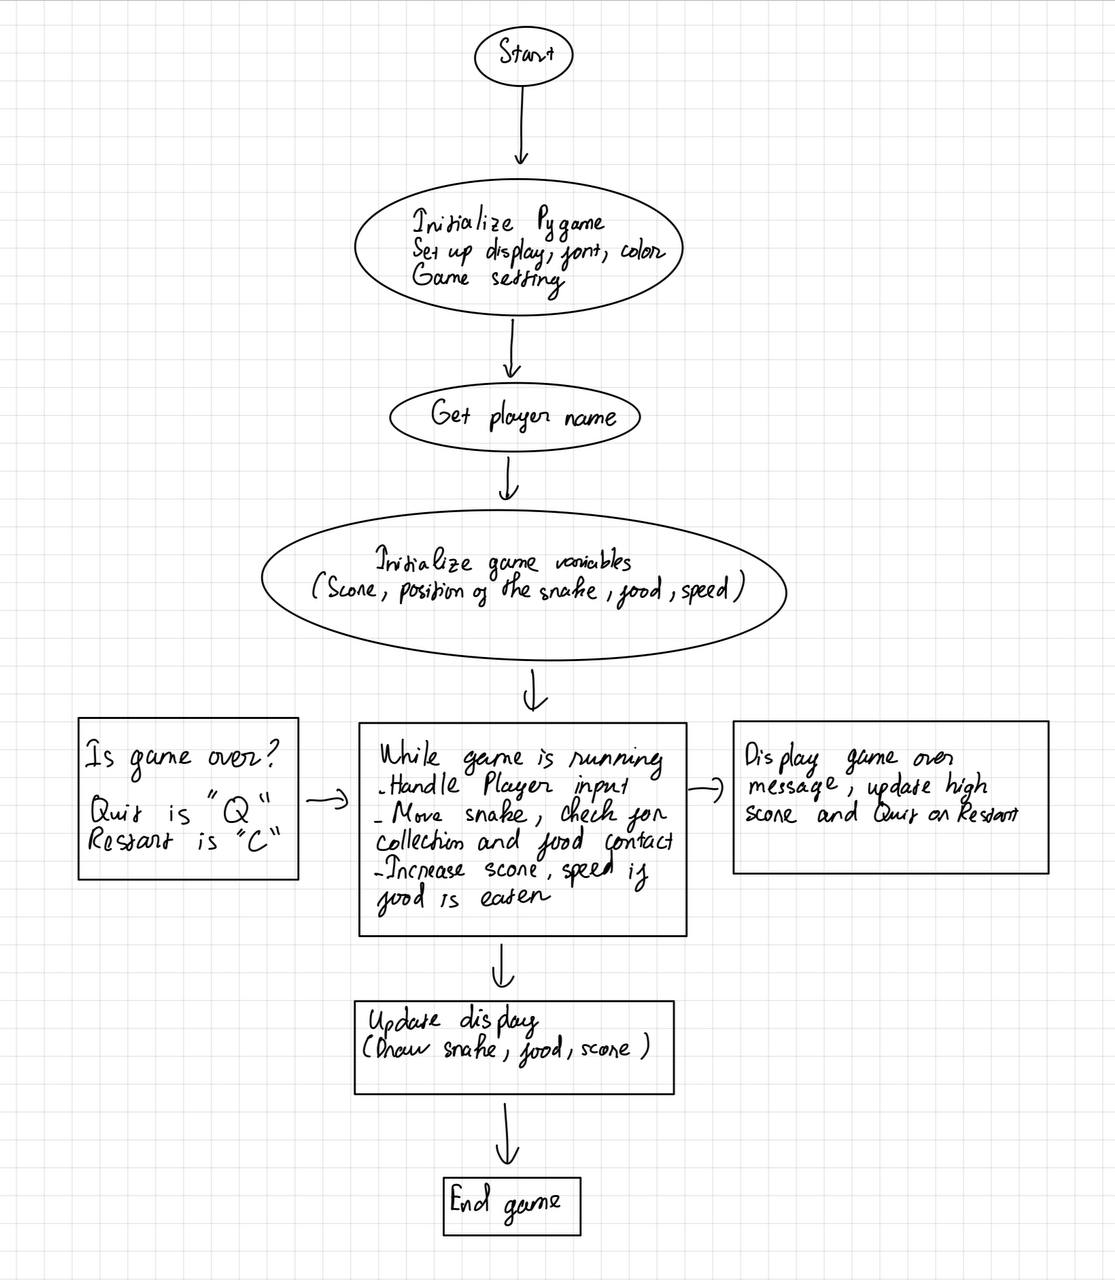 Start
Initialize Pygame
Set up display, font, color
Game setting
Get player name
Initialize game variables
(Score, position of the snake, food, speed)
Is game over?
Quit is "Q"
Restart is "C"
While game is running
-Handle Player input
- Move snake, check for
collection and food contact
-Increase score, speed if
food is eaten
Display game over
message, update high
score and Quit or Restart
Update display
(Draw snake, food, score)
End game